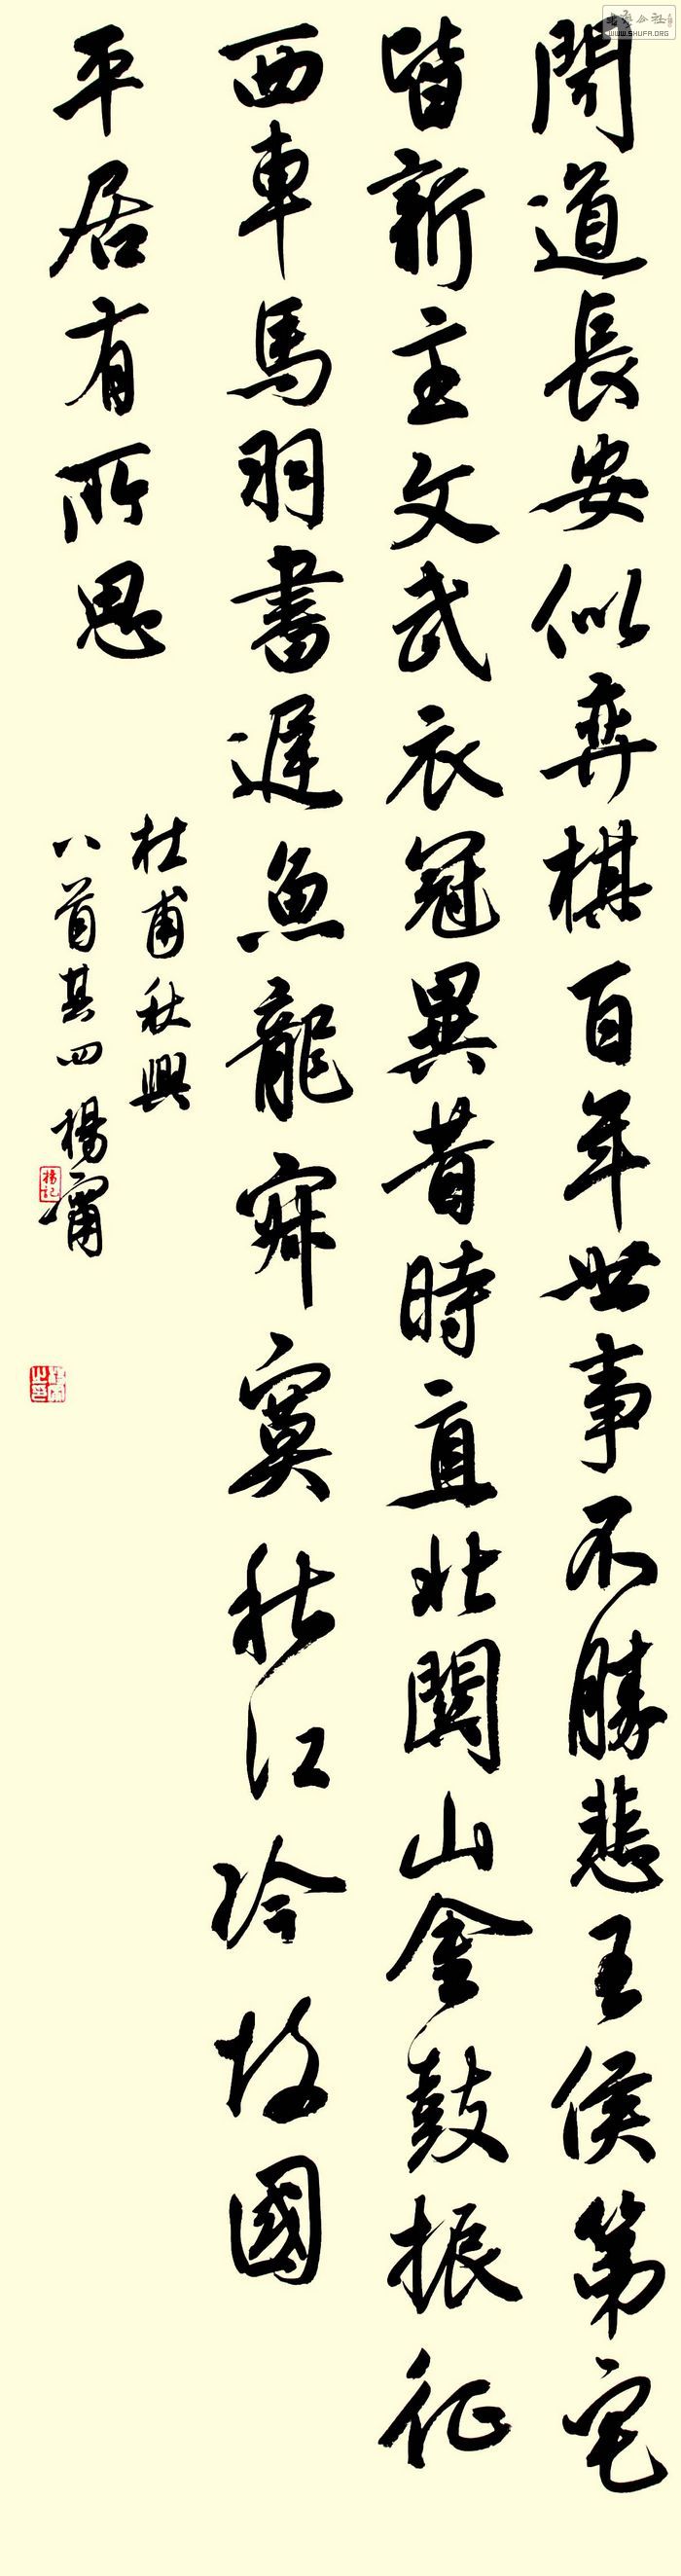 聞道長安似弈棋百年世事不勝悲王侯第宅
皆新主文武衣冠異昔時直北關山金鼓振征
西車馬羽書遲魚龍寂寞秋江冷故國
平居有所思
杜甫秋興
八首其四 楊甯
WWW.SHUFA.ORG